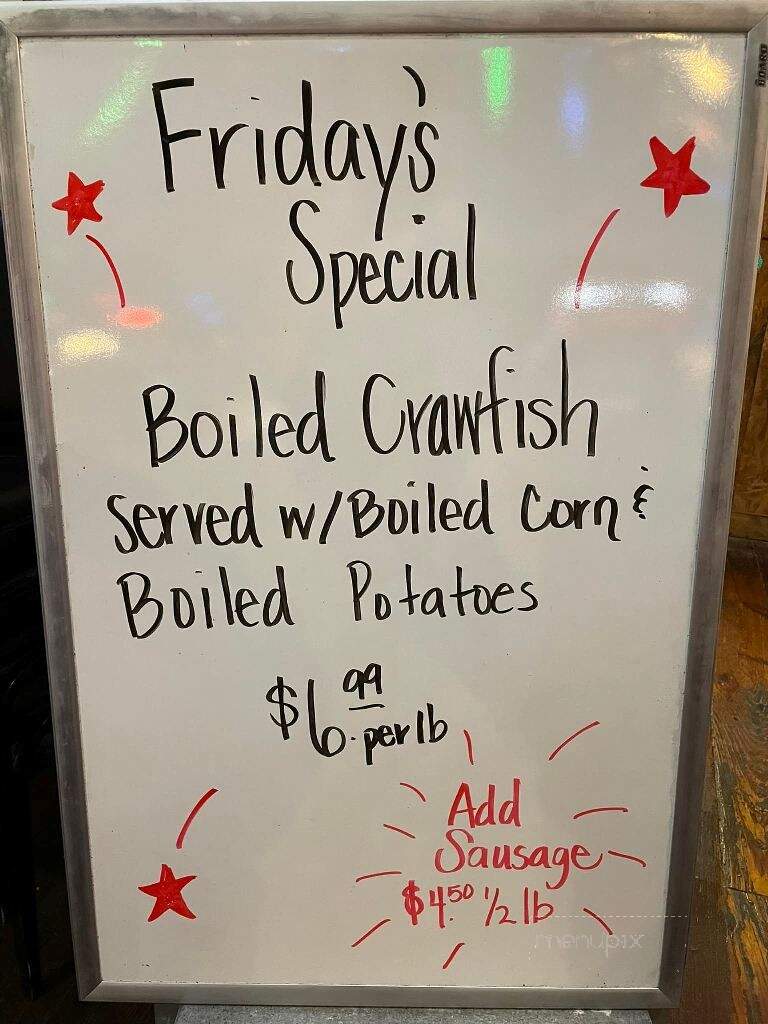 Friday's
Special
Boiled Crawfish
Served w/Boiled Corn &
Boiled Potatoes
$6.99 per lb
Add
Sausage
$4.50 1/2 lb
menupix
BOARD